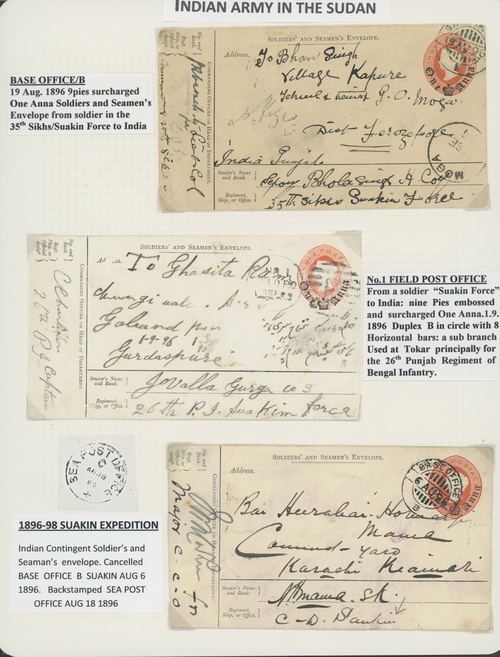 INDIAN ARMY IN THE SUDAN
BASE OFFICE/B
19 Aug. 1896 9pies surcharged
One Anna Soldiers and Seamen's
Envelope from soldier in the
35th Sikhs/Suakin Force to India
SOLDIERS' AND SEAMEN'S ENVELOPE.
Address.
To Bhan Singh
Village Kapure
P. O. Moga
Dist Ferozepore
India Punjab
Sender's Name and Rank.
Sepoy Bhola Singh H Coy
Regiment, Ship, or Office.
35th Sikhs Suakin Force
COMMANDING OFFICER OR HEAD OF DEPARTMENT.
One Anna
MOGA
SOLDIERS' AND SEAMEN'S ENVELOPE.
To Ghasita Ram
1-9-96
Gurdaspur
Sender's Name and Rank.
Regiment, Ship, or Office.
26th P.I. Suakim force
COMMANDING OFFICER OR HEAD OF DEPARTMENT.
26th P.I. Captain
One Anna
No.1 FIELD POST OFFICE
From a soldier "Suakin Force"
to India: nine Pies embossed
and surcharged One Anna.1.9.
1896 Duplex B in circle with 8
Horizontal bars: a sub branch
Used at Tokar principally for
the 26th Punjab Regiment of
Bengal Infantry.
SEA POST OFFICE
C
AU 18
1896-98 SUAKIN EXPEDITION
Indian Contingent Soldier's and
Seaman's envelope. Cancelled
BASE OFFICE B SUAKIN AUG 6
1896. Backstamped SEA POST
OFFICE AUG 18 1896
SOLDIERS' AND SEAMEN'S ENVELOPE.
Address.
Mama
Karachi Kiamari
Sender's Name and Rank.
Regiment, Ship, or Office.
C-D. Suakin
COMMANDING OFFICER OR HEAD OF DEPARTMENT.
Major C-C-O
BASE OFFICE
B